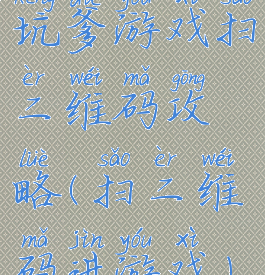 kēng diē yóu xì sǎo
坑爹游戏扫
èr wéi mǎ gōng
二维码攻
lüè sǎo èr wéi
略(扫二维
mǎ jìn yóu xì
码进游戏)